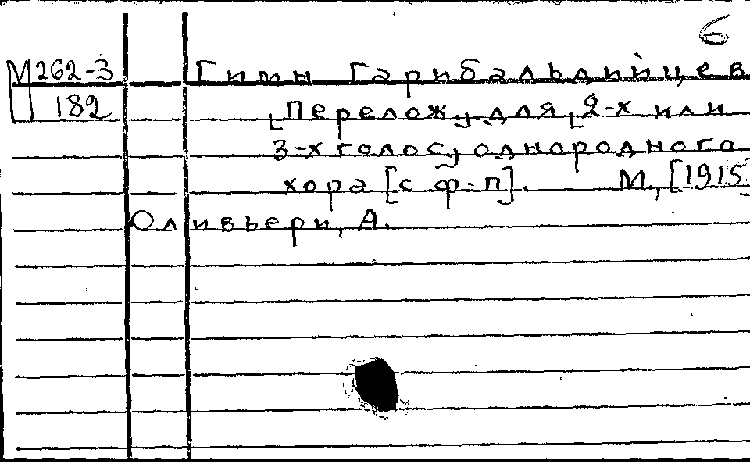 6
М262-3 Гимн Гарибальдийцев
182 [Перелож. для] 2-х или
3-х голос, однородного
хора [с ф-п]. М., [1915
Оливьери, А.